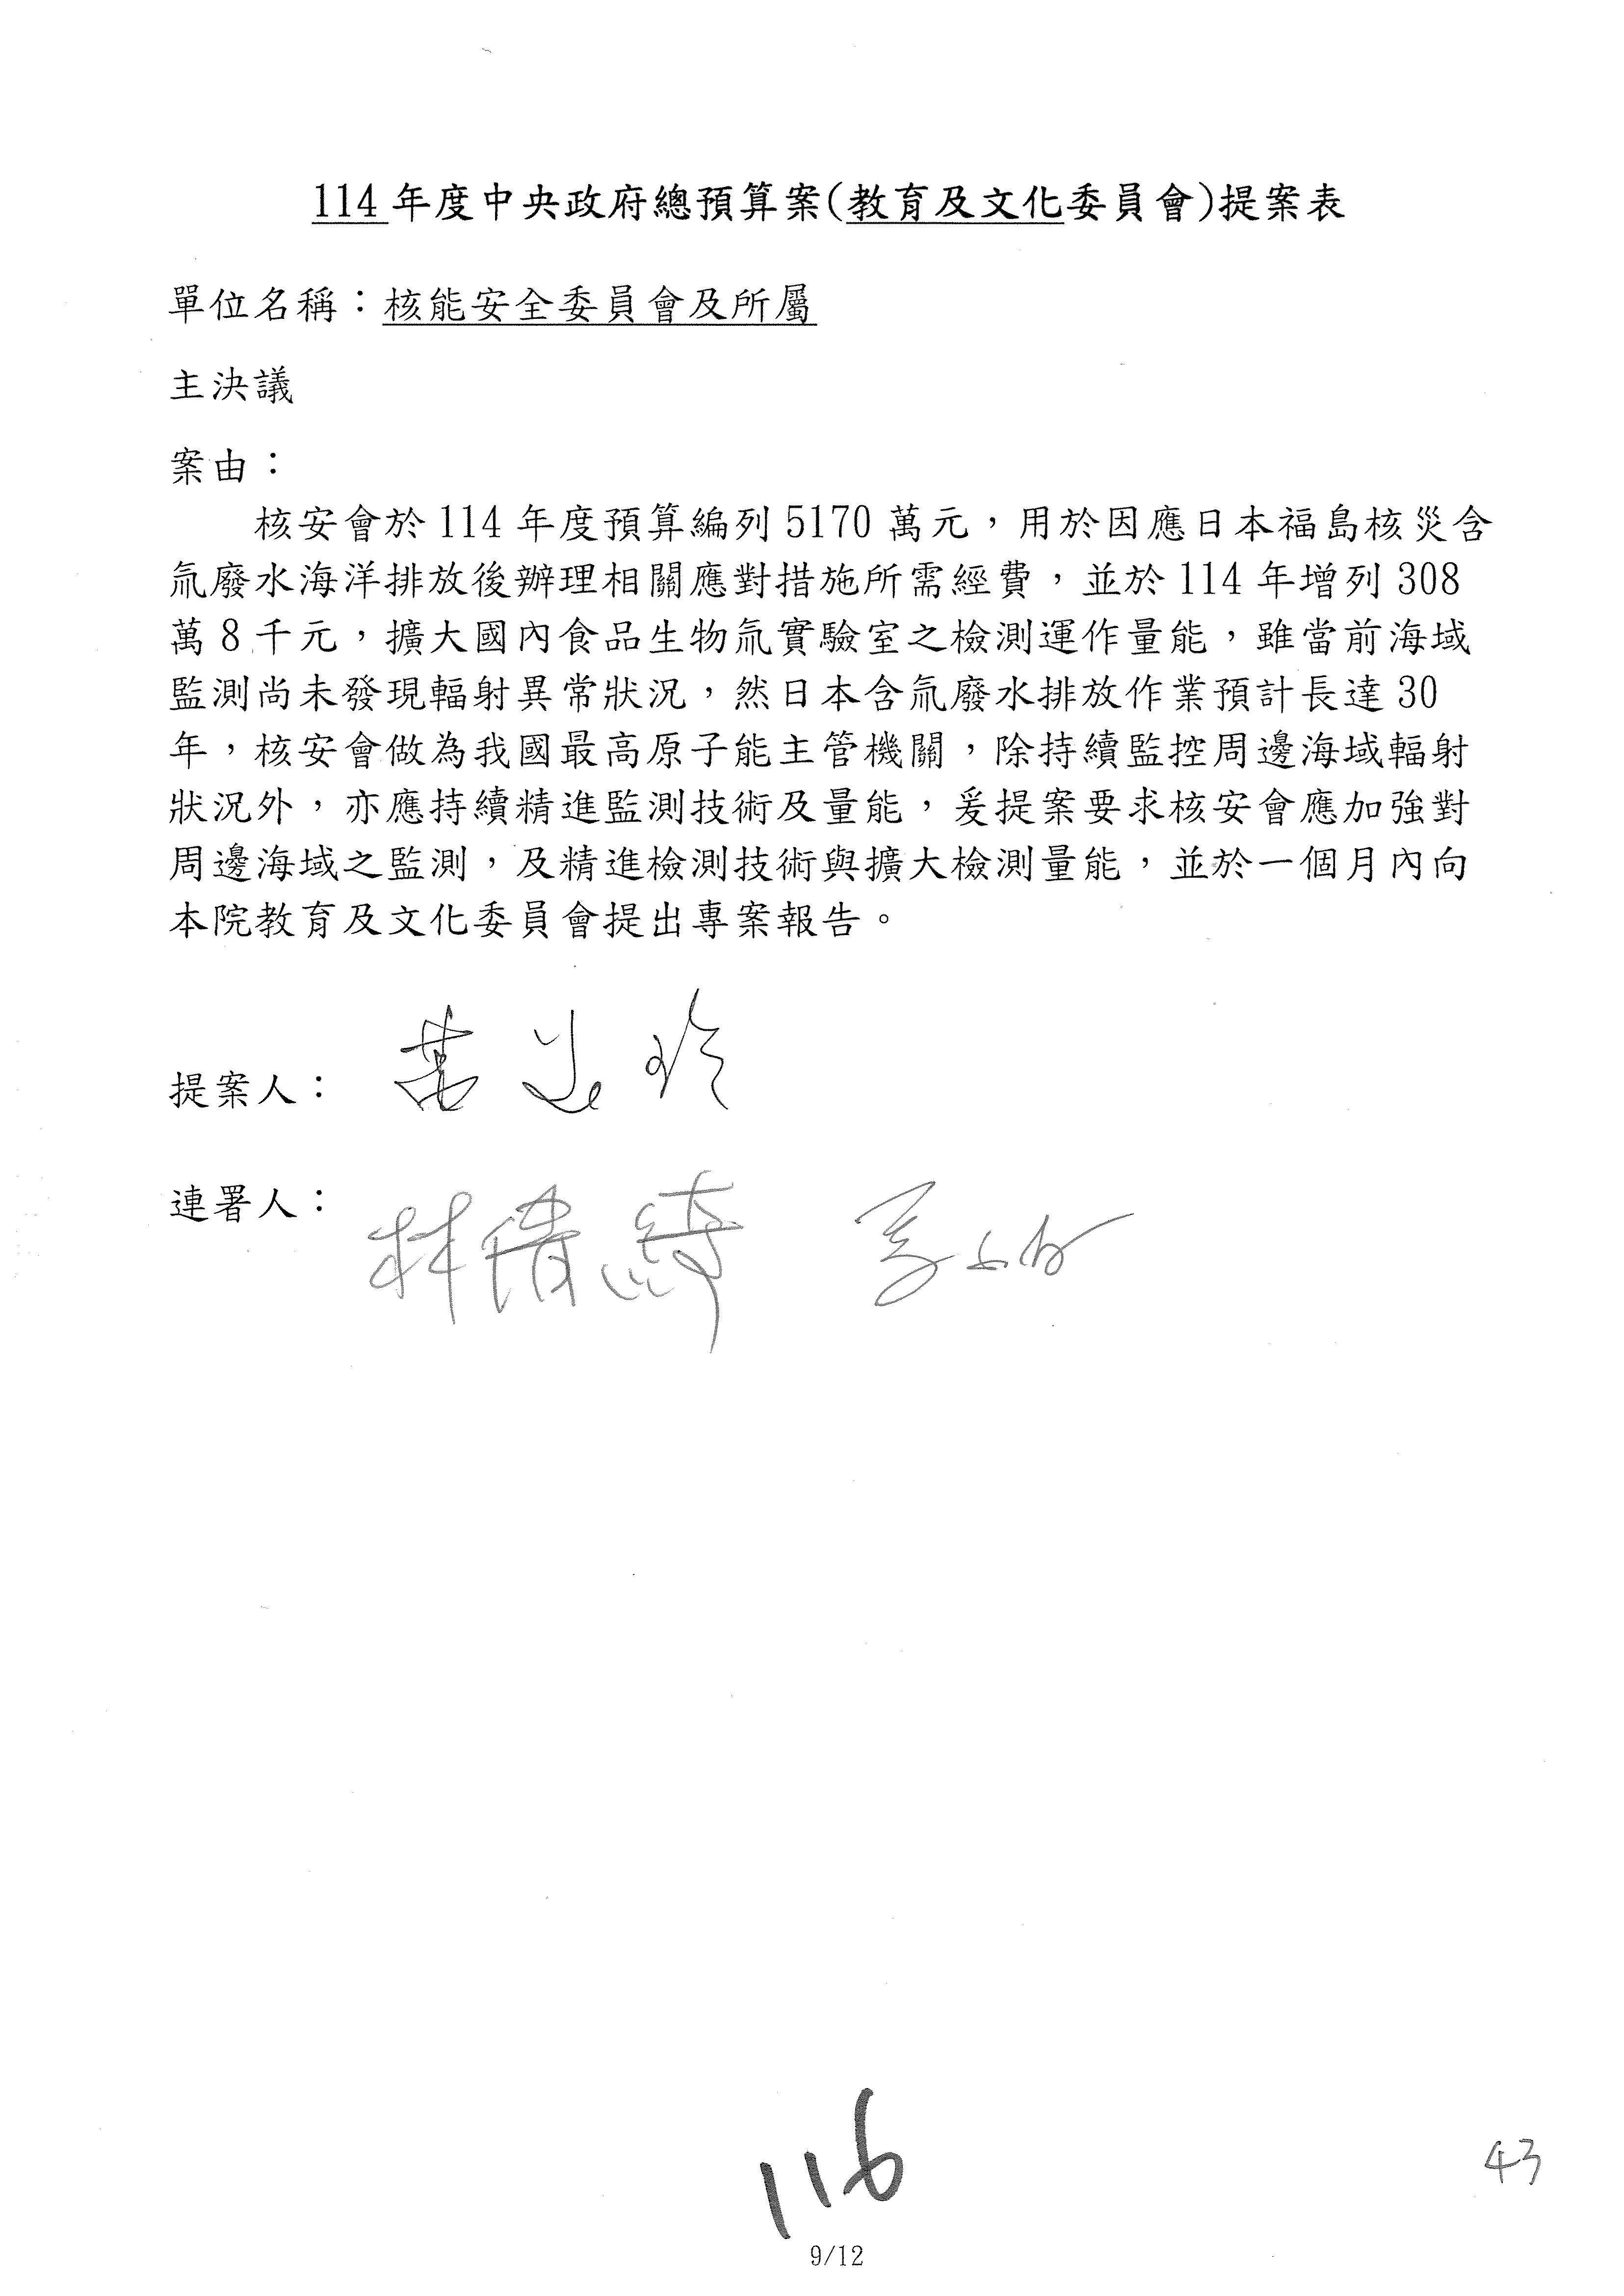 114 年度中央政府總預算案(教育及文化委員會)提案表
單位名稱：核能安全委員會及所屬
主決議
案由：
核安會於 114 年度預算編列 5170 萬元，用於因應日本福島核災含
氚廢水海洋排放後辦理相關應對措施所需經費，並於 114 年增列 308
萬 8 千元，擴大國內食品生物氚實驗室之檢測運作量能，雖當前海域
監測尚未發現輻射異常狀況，然日本含氚廢水排放作業預計長達 30
年，核安會做為我國最高原子能主管機關，除持續監控周邊海域輻射
狀況外，亦應持續精進監測技術及量能，爰提案要求核安會應加強對
周邊海域之監測，及精進檢測技術與擴大檢測量能，並於一個月內向
本院教育及文化委員會提出專案報告。
提案人：
連署人：林倚綺
116
43
9/12